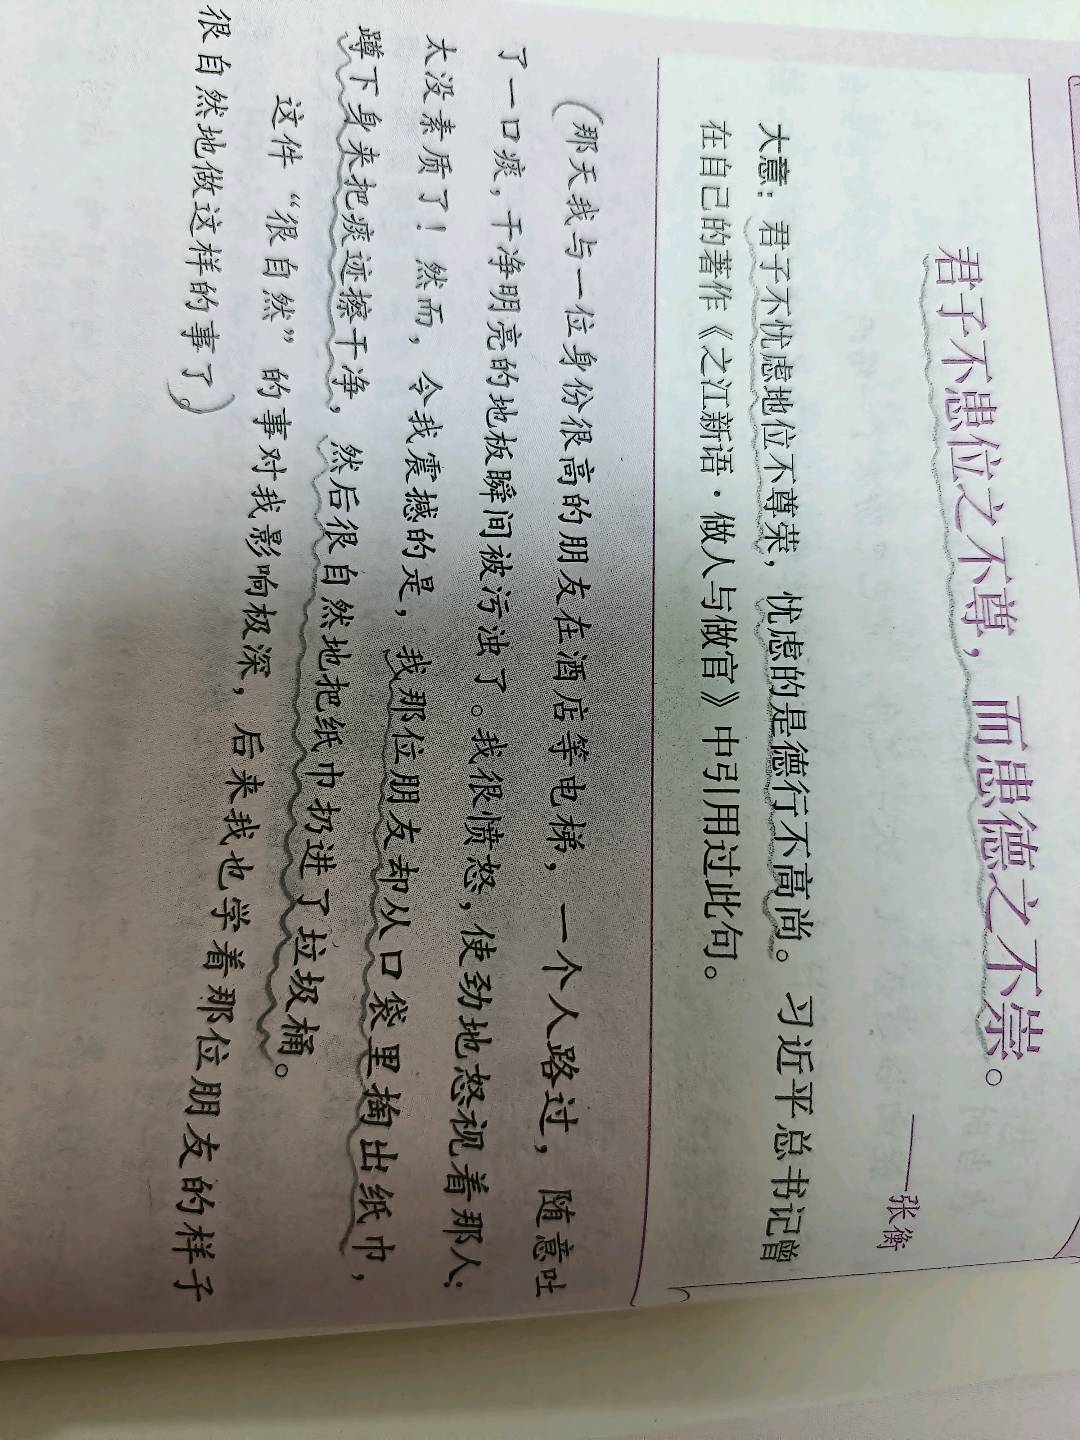 君子不患位之不尊，而患德之不崇。
——张衡
大意：君子不忧虑地位不尊荣，忧虑的是德行不高尚。习近平总书记曾
在自己的著作《之江新语·做人与做官》中引用过此句。
（那天我与一位身份很高的朋友在酒店等电梯，一个人路过，随意吐
了一口痰，干净明亮的地板瞬间被污浊了。我很愤怒，使劲地怒视着那人：
太没素质了！然而，令我震撼的是，我那位朋友却从口袋里掏出纸巾，
蹲下身来把痰迹擦干净，然后很自然地把纸巾扔进了垃圾桶。
这件“很自然”的事对我影响极深，后来我也学着那位朋友的样子
很自然地做这样的事了。）